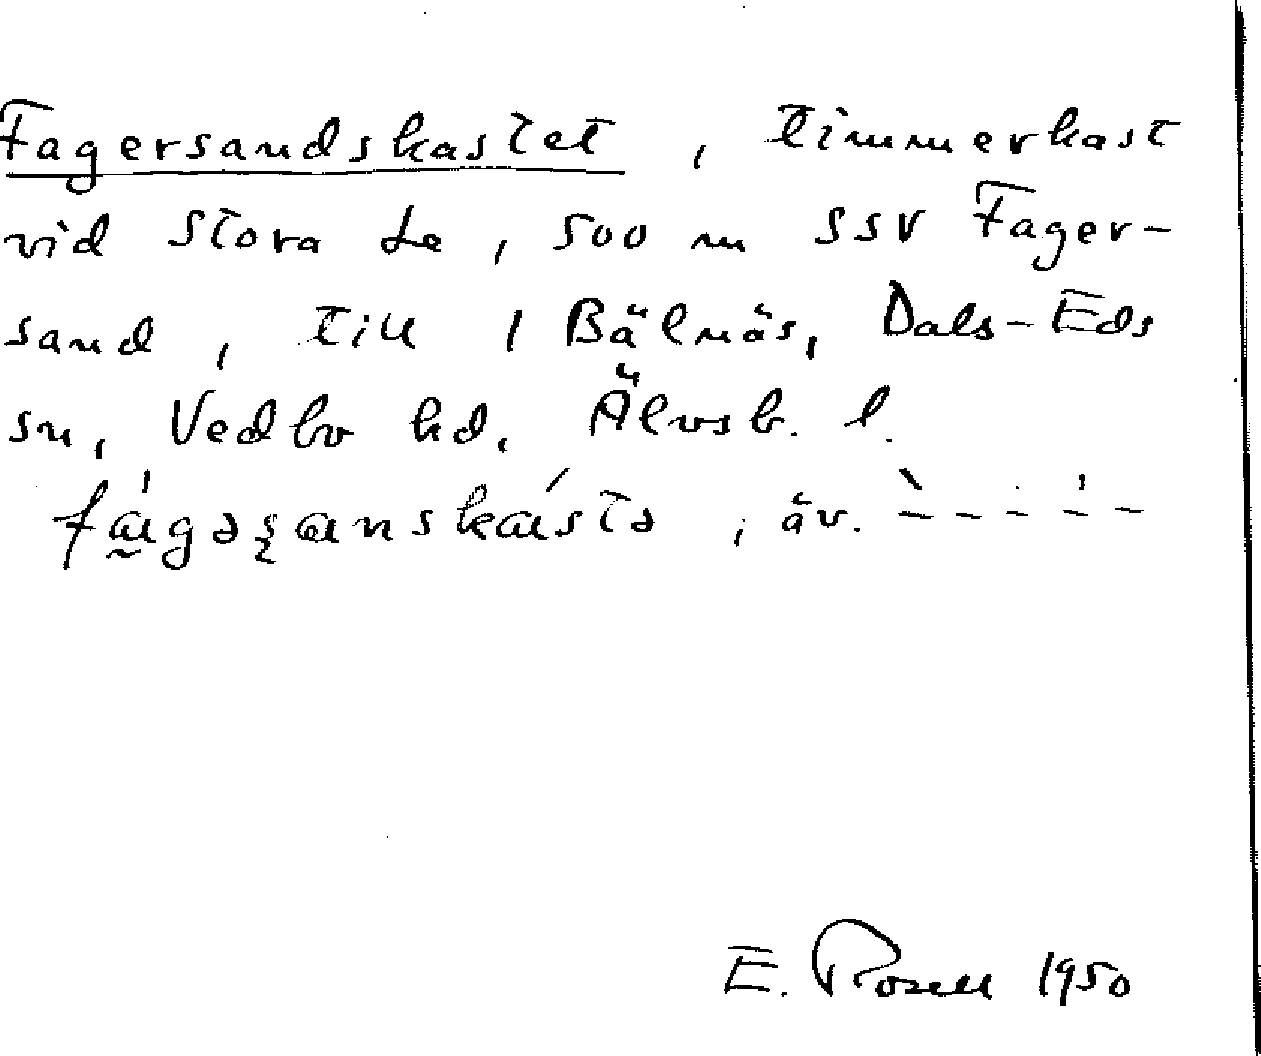 Fagersandskastet, timmerkast
vid Stora Le, 500 m SSV Fager-
sand, till 1 Bälnäs, Dals-Eds
sn, Vedbo hd, Älvsb. l.
, äv. - - - - -
E. Rosell 1950